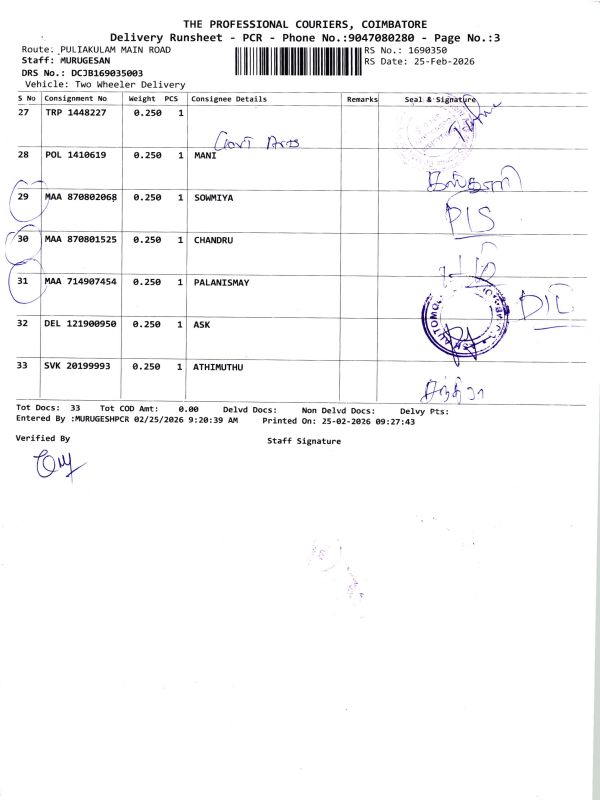 THE PROFESSIONAL COURIERS, COIMBATORE
Delivery Runsheet - PCR - Phone No.:9047080280 - Page No.:3
Route: PULIAKULAM MAIN ROAD RS No.: 1690350
Staff: MURUGESAN RS Date: 25-Feb-2026
DRS No.: DCJB169035003
Vehicle: Two Wheeler Delivery
S No Consignment No Weight PCS Consignee Details Remarks Seal & Signature
27 TRP 1448227 0.250 1
Govt Arts
28 POL 1410619 0.250 1 MANI
29 MAA 870802068 0.250 1 SOWMIYA
30 MAA 870801525 0.250 1 CHANDRU
31 MAA 714907454 0.250 1 PALANISMAY
32 DEL 121900950 0.250 1 ASK
33 SVK 20199993 0.250 1 ATHIMUTHU
Tot Docs: 33 Tot COD Amt: 0.00 Delvd Docs: Non Delvd Docs: Delvy Pts:
Entered By :MURUGESHPCR 02/25/2026 9:20:39 AM Printed On: 25-02-2026 09:27:43
Verified By Staff Signature